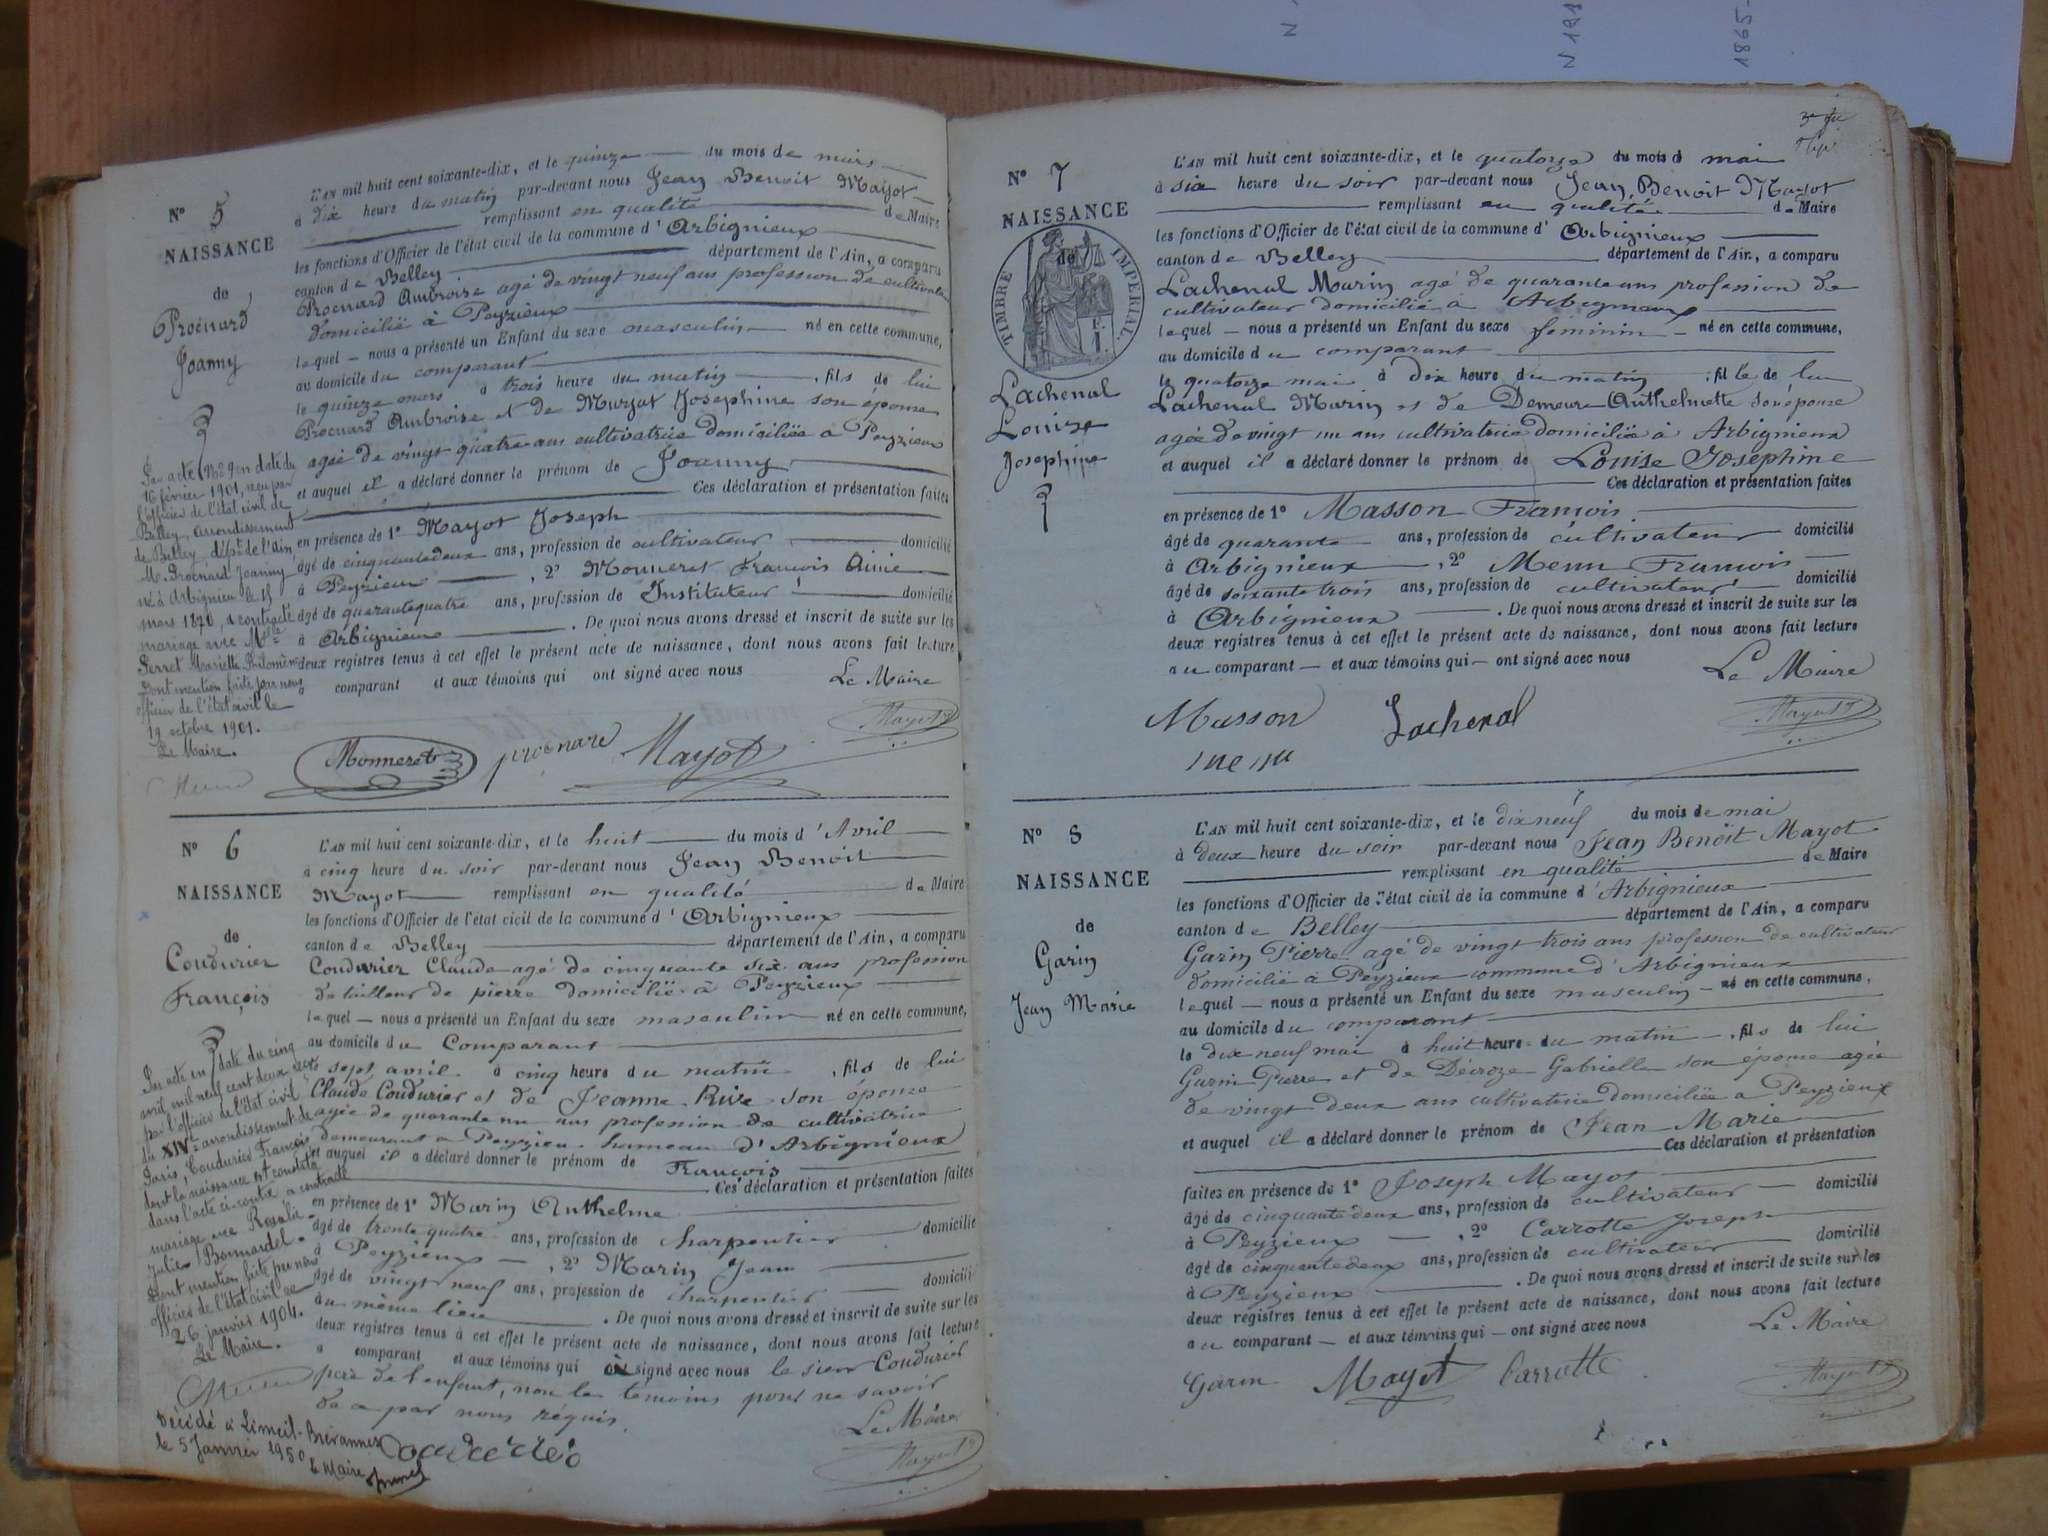 N 191
1865-
N° 5
NAISSANCE
de
Proénard
Joanny
L'AN mil huit cent soixante-dix, et le quinze du mois de mars
à dix heure du matin par-devant nous Jean Benoit Mayot
remplissant en qualité de Maire
les fonctions d'Officier de l'état civil de la commune d'Arbignieux
canton de Belley département de l'Ain, a comparu
Proénard Ambroise agé de vingt neuf ans profession de cultivateur
domicilié à Peyzieux
lequel nous a présenté un Enfant du sexe masculin né en cette commune,
au domicile du comparant
le quinze mars à trois heure du matin, fils de lui
Proénard Ambroise et de Muzat Josephine son épouse
agée de vingt quatre ans cultivatrice domiciliée à Peyzieux
et auquel il a déclaré donner le prénom de Joanny
Ces déclaration et présentation faites
en présence de 1° Mayot Joseph
âgé de cinquantedeux ans, profession de cultivateur domicilié
à Peyzieux, 2° Monneret François Aimé
âgé de quarantequatre ans, profession de Instituteur domicilié
à Arbignieux. De quoi nous avons dressé et inscrit de suite sur les
deux registres tenus à cet effet le présent acte de naissance, dont nous avons fait lecture
comparant et aux témoins qui ont signé avec nous
Le Maire
Monneret proénard Mayot Mayot
Par acte N° 9 en date du
16 février 1901, reçu par
l'officier de l'état civil de
Belley, arrondissement
de Belley, dépt de l'Ain,
M. Proénard Joanny
né à Arbignieu le 15
mars 1870, a contracté
mariage avec Mlle
Perret Mariette Philomène
Dont mention faite par nous
officier de l'état civil le
19 octobre 1901.
Le Maire.
N° 6
NAISSANCE
de
Coudurier
François
L'AN mil huit cent soixante-dix, et le huit du mois d'Avril
à cinq heure du soir par-devant nous Jean Benoit
Mayot remplissant en qualité de Maire
les fonctions d'Officier de l'état civil de la commune d'Arbignieux
canton de Belley département de l'Ain, a comparu
Coudurier Claude agé de cinquante six ans profession
de tailleur de pierre domicilié à Peyzieux
lequel nous a présenté un Enfant du sexe masculin né en cette commune,
au domicile du Comparant
le sept avril à cinq heure du matin, fils de lui
Claude Coudurier et de Jeanne Rive son épouse
agée de quarante un ans profession de cultivatrice
demeurant a Peyzieu hameau d'Arbignieux
et auquel il a déclaré donner le prénom de François
Ces déclaration et présentation faites
en présence de 1° Marin Anthelme
âgé de trente quatre ans, profession de charpentier domicilié
à Peyzieux, 2° Marin Jean
âgé de vingt neuf ans, profession de charpentier domicilié
au même lieu. De quoi nous avons dressé et inscrit de suite sur les
deux registres tenus à cet effet le présent acte de naissance, dont nous avons fait lecture
a comparant et aux témoins qui a signé avec nous le sieur Coudurier
père de l'enfant, non les témoins pour ne savoir
de a par nous réquis.
Le Maire
Coudurier Mayot
Par acte en date du cinq
avril mil neuf cent deux reçu
par l'officier de l'état civil
du XIVe arrondissement de
Paris, Coudurier François
dont la naissance est constatée
dans l'acte ci-contre a contracté
mariage avec Rosalie
Julie Bonnardel.
Dont mention faite par nous
officier de l'état civil ce
26 janvier 1904.
Le Maire.
Décédé à Limeil-Brévannes
le 5 Janvier 1950
le Maire
N° 7
NAISSANCE
de
TIMBRE IMPERIAL
Lachenal
Louise
Josephine
L'AN mil huit cent soixante-dix, et le quatorze du mois d mai
à six heure du soir par-devant nous Jean Benoit Mayot
remplissant en qualité de Maire
les fonctions d'Officier de l'état civil de la commune d'Arbignieux
canton de Belley département de l'Ain, a comparu
Lachenal Marin agé de quarante ans profession de
cultivateur domicilié à Arbignieux
lequel nous a présenté un Enfant du sexe feminin né en cette commune,
au domicile du comparant
le quatorze mai à dix heure du matin, fille de lui
Lachenal Marin et de Demeure Anthelmette son épouse
agée de vingt un ans cultivatrice domiciliée à Arbignieux
et auquel il a déclaré donner le prénom de Louise Josephine
Ces déclaration et présentation faites
en présence de 1° Masson François
âgé de quarante ans, profession de cultivateur domicilié
à Arbignieux, 2° Menu François
âgé de soixante trois ans, profession de cultivateur domicilié
à Arbignieux. De quoi nous avons dressé et inscrit de suite sur les
deux registres tenus à cet effet le présent acte de naissance, dont nous avons fait lecture
au comparant et aux témoins qui ont signé avec nous
Le Maire
Masson Lachenal Mayot
menu
N° 8
NAISSANCE
de
Garin
Jean Marie
L'AN mil huit cent soixante-dix, et le dix neuf du mois de mai
à deux heure du soir par-devant nous Jean Benoit Mayot
remplissant en qualité de Maire
les fonctions d'Officier de l'état civil de la commune d'Arbignieux
canton de Belley département de l'Ain, a comparu
Garin Pierre agé de vingt trois ans profession de cultivateur
domicilié à Peyzieux commune d'Arbignieux
lequel nous a présenté un Enfant du sexe masculin né en cette commune,
au domicile du comparant
le dix neuf mai à huit heure du matin, fils de lui
Garin Pierre et de Décroze Gabrielle son épouse agée
de vingt deux ans cultivatrice domiciliée a Peyzieux
et auquel il a déclaré donner le prénom de Jean Marie
Ces déclaration et présentation
faites en présence de 1° Joseph Mayot
âgé de cinquantedeux ans, profession de cultivateur domicilié
à Peyzieux, 2° Carrotte Joseph
âgé de cinquantedeux ans, profession de cultivateur domicilié
à Peyzieux. De quoi nous avons dressé et inscrit de suite sur les
deux registres tenus à cet effet le présent acte de naissance, dont nous avons fait lecture
au comparant et aux témoins qui ont signé avec nous
Le Maire
Garin Mayot Carrotte Mayot